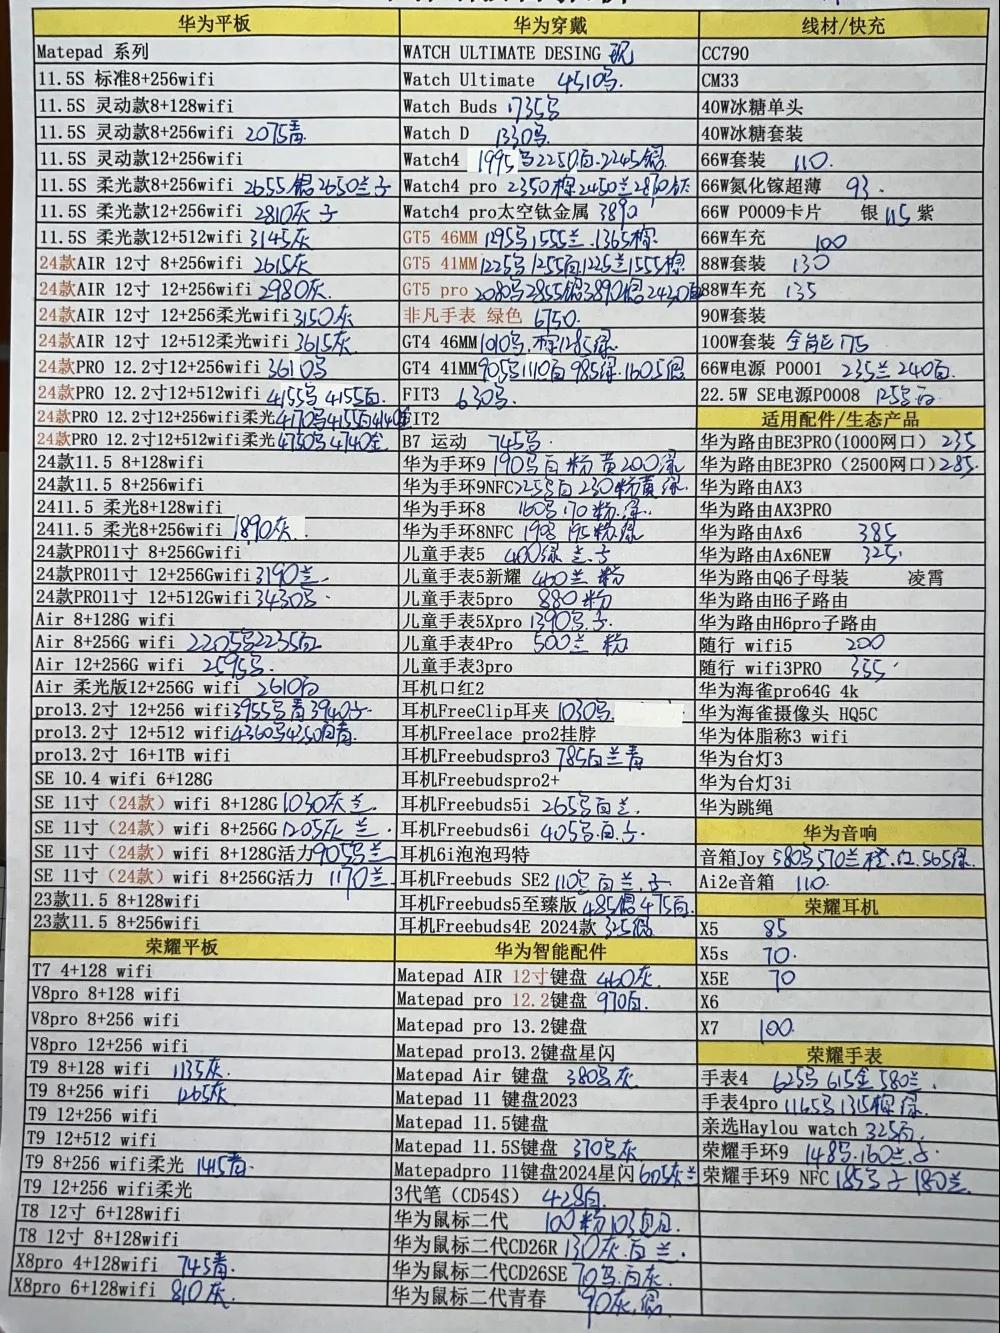 华为平板
Matepad 系列
11.5S 标准8+256wifi
11.5S 灵动款8+128wifi
11.5S 灵动款8+256wifi 2075青
11.5S 灵动款12+256wifi
11.5S 柔光款8+256wifi 2655银2650兰子
11.5S 柔光款12+256wifi 2810灰子
11.5S 柔光款12+512wifi 3145灰
24款AIR 12寸 8+256wifi 2615灰
24款AIR 12寸 12+256wifi 2980灰.
24款AIR 12寸 12+256柔光wifi 3150灰
24款AIR 12寸 12+512柔光wifi 3615灰
24款PRO 12.2寸12+256wifi 3610
24款PRO 12.2寸12+512wifi 4155 4155白.
24款PRO 12.2寸12+256wifi柔光 4170 4155白4140金
24款PRO 12.2寸12+512wifi柔光 4750 4740金
24款11.5 8+128wifi
24款11.5 8+256wifi
2411.5 柔光8+128wifi
2411.5 柔光8+256wifi 1890灰.
24款PRO11寸 8+256Gwifi
24款PRO11寸 12+256Gwifi 3190兰.
24款PRO11寸 12+512Gwifi 3430
Air 8+128G wifi
Air 8+256G wifi 2205 2235白
Air 12+256G wifi 2595
Air 柔光版12+256G wifi 2610白
pro13.2寸 12+256 wifi 3955 青3940子
pro13.2寸 12+512 wifi 4360 4350白青
pro13.2寸 16+1TB wifi
SE 10.4 wifi 6+128G
SE 11寸（24款）wifi 8+128G 1030灰兰.
SE 11寸（24款）wifi 8+256G 1205灰 兰.
SE 11寸（24款）wifi 8+128G活力 905 兰
SE 11寸（24款）wifi 8+256G活力 1170兰
23款11.5 8+128wifi
23款11.5 8+256wifi
荣耀平板
T7 4+128 wifi
V8pro 8+128 wifi
V8pro 8+256 wifi
V8pro 12+256 wifi
T9 8+128 wifi 1135灰
T9 8+256 wifi 1265灰
T9 12+256 wifi
T9 12+512 wifi
T9 8+256 wifi柔光 1415青.
T9 12+256 wifi柔光
T8 12寸 6+128wifi
T8 12寸 8+128wifi
X8pro 4+128wifi 745青
X8pro 6+128wifi 810灰.
华为穿戴
WATCH ULTIMATE DESING 现
Watch Ultimate 4510
Watch Buds 1735
Watch D 1330
Watch4 1995 2250白.2245银.
Watch4 pro 2350棕2450兰2870钛
Watch4 pro太空钛金属 3890
GT5 46MM 1295 1555兰.1365棕.
GT5 41MM 1225 1255白1225兰1555棕
GT5 pro 2080 2855银3890银2430白
非凡手表 绿色 6750.
GT4 46MM 1010 .棕1285绿.
GT4 41MM 905 1110白985绿.1605银
FIT3 630
FIT2
B7 运动 745
华为手环9 190 白 粉 黄200绿
华为手环9NFC 225 白 230粉黄 绿.
华为手环8 160 170 粉.绿.
华为手环8NFC 195粉.绿
儿童手表5 400绿 兰.子
儿童手表5新耀 460兰 粉
儿童手表5pro 880 粉
儿童手表5Xpro 1390 .子
儿童手表4Pro 500兰 粉
儿童手表3pro
耳机口红2
耳机FreeClip耳夹 1030
耳机Freelace pro2挂脖
耳机Freebudspro3 785白兰青
耳机Freebudspro2+
耳机Freebuds5i 265 白兰.
耳机Freebuds6i 405 .白.子.
耳机6i泡泡玛特
耳机Freebuds SE2 110 白 兰.子
耳机Freebuds5至臻版 485银475白.
耳机Freebuds4E 2024款 325银
华为智能配件
Matepad AIR 12寸键盘 460灰.
Matepad pro 12.2键盘 970白.
Matepad pro 13.2键盘
Matepad pro13.2键盘星闪
Matepad Air 键盘 380 灰
Matepad 11 键盘2023
Matepad 11.5键盘
Matepad 11.5S键盘 370 灰
Matepadpro 11键盘2024星闪 605灰兰
3代笔（CD54S） 428白
华为鼠标二代 100粉103
华为鼠标二代CD26R 130灰.白 兰.
华为鼠标二代CD26SE 70 .白灰.
华为鼠标二代青春 90灰.银
线材/快充
CC790
CM33
40W冰糖单头
40W冰糖套装
66W套装 110.
66W氮化镓超薄 93.
66W P0009卡片 银 115 紫
66W车充 100
88W套装 130
88W车充 135
90W套装
100W套装 全能175
66W电源 P0001 235兰240白.
22.5W SE电源P0008
适用配件/生态产品
华为路由BE3PRO(1000网口) 235
华为路由BE3PRO（2500网口) 285.
华为路由AX3
华为路由AX3PRO
华为路由Ax6 385
华为路由Ax6NEW 325.
华为路由Q6子母装 凌霄
华为路由H6子路由
华为路由H6pro子路由
随行 wifi5 200
随行 wifi3PRO 355
华为海雀pro64G 4k
华为海雀摄像头 HQ5C
华为体脂称3 wifi
华为台灯3
华为台灯3i
华为跳绳
华为音响
音箱Joy 580 570兰 橙.红.565绿
Ai2e音箱 110.
荣耀耳机
X5 85
X5s 70.
X5E 70
X6
X7 100.
荣耀手表
手表4 625 615金 580兰.
手表4pro 1165 1315棕 绿.
亲选Haylou watch 325
荣耀手环9 148 .160兰.子
荣耀手环9 NFC 185 子180兰.